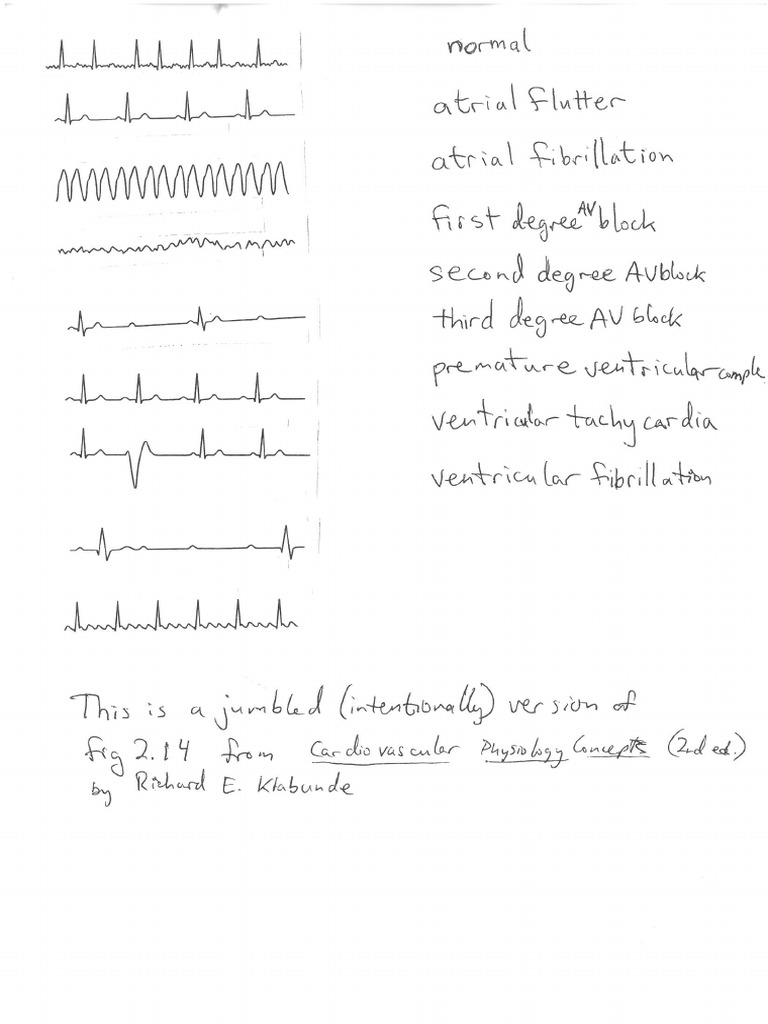 normal
atrial flutter
atrial fibrillation
first degree AV block
second degree AV block
third degree AV block
premature ventricular comple
ventricular tachycardia
ventricular fibrillation
This is a jumbled (intentionally) version of
fig 2.14 from Cardiovascular Physiology Concepts (2nd ed.)
by Richard E. Klabunde